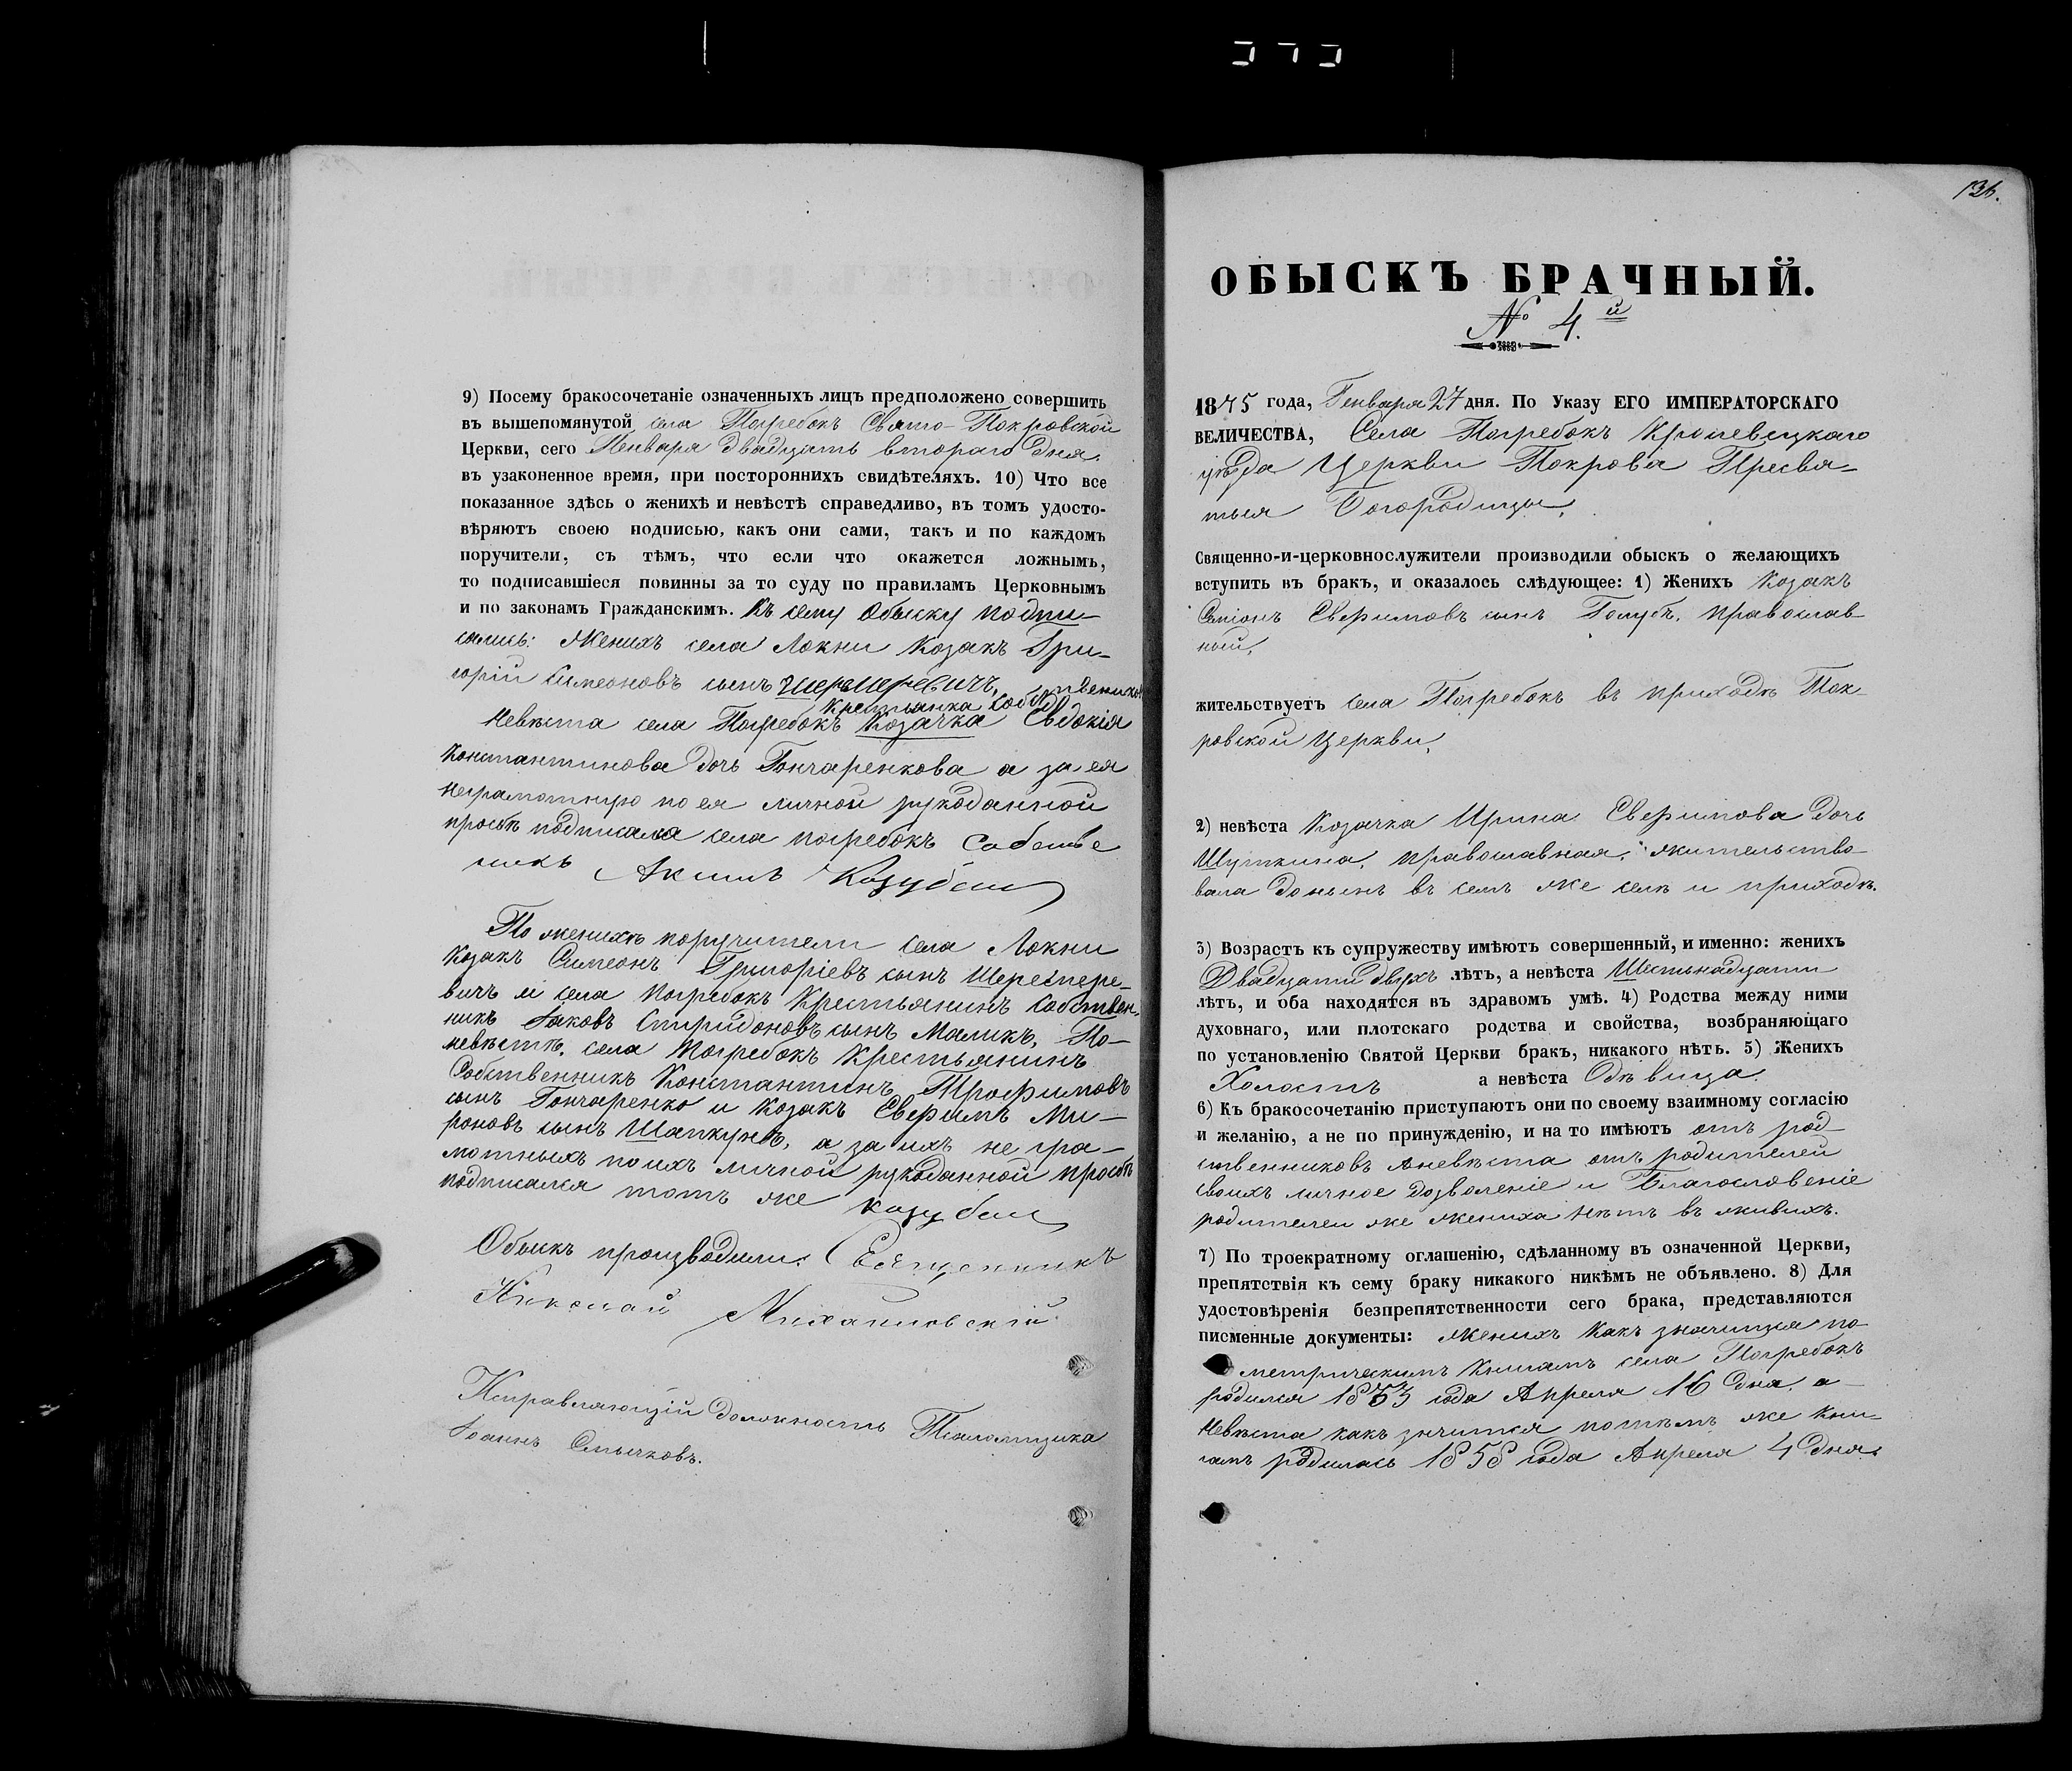 9) Посему бракосочетаніе означенныхъ лицъ предположено совершить
въ вышепомянутой села Погребокъ Свято-Покровской
Церкви, сего Генваря двадцать втораго дня.
въ узаконенное время, при постороннихъ свидѣтеляхъ. 10) Что все
показанное здѣсь о женихѣ и невѣстѣ справедливо, въ томъ удосто-
вѣряютъ своею подписью, какъ они сами, такъ и по каждомъ
поручители, съ тѣмъ, что если что окажется ложнымъ,
то подписавшіеся повинны за то суду по правиламъ Церковнымъ
и по законамъ Гражданскимъ. Къ сему обыску подпи-
сались: Женихъ села Локни Козакъ Гри-
горій Симеоновъ сынъ
Крестьянка
Невѣста села Погребокъ Козачка Евдокія
Константинова дочь Гончаренкова а за ея
неграмотную по ея личной рукоданной
просьбѣ подписался села погребокъ Собстве
никъ Акимъ Козубай
По женихѣ поручители села Локни
Козакъ Симеонъ Григоріевъ сынъ Шереспере-
вичъ и села Погребокъ Крестьянинъ Собствен-
никъ Іаковъ Спиридоновъ сынъ Маликъ, По
невѣстѣ, села Погребокъ Крестьянинъ
Собственникъ Константинъ Трофимовъ
сынъ Гончаренко и Козакъ Евфимъ Ми-
роновъ сынъ а за ихъ не гра-
мотныхъ по ихъ личной рукоданной просьбѣ
подписался тотъ же Козубай
Обыскъ производили: Священникъ
Николай Михайловскій
Исправляющій должность Псаломщика
Іоаннъ Смычковъ.
136.
ОБЫСКЪ БРАЧНЫЙ.
№ 4.й
1875 года, Генваря 27 дня. По Указу ЕГО ИМПЕРАТОРСКАГО
ВЕЛИЧЕСТВА, Села Погребокъ Кролевецкаго
уѣзда Церкви Покрова Пресвя-
тыя Богородицы.
Священно-и-церковнослужители производили обыскъ о желающихъ
вступить въ бракъ, и оказалось слѣдующее: 1) Женихъ Козакъ
Симіонъ Евфимовъ сынъ Голубъ, православ-
ный,
жительствуетъ села Погребокъ въ приходѣ Пок-
ровской Церкви,
2) невѣста Козачка Ирина Евфимова дочь
православная, жительство-
вала донынѣ въ семъ же селѣ и приходѣ.
3) Возрастъ къ супружеству имѣютъ совершенный, и именно: женихъ
Двадцати двухъ лѣтъ, а невѣста Шестьнадцати
лѣтъ, и оба находятся въ здравомъ умѣ. 4) Родства между ними
духовнаго, или плотскаго родства и свойства, возбраняющаго
по установленію Святой Церкви бракъ, никакого нѣтъ. 5) Женихъ
Холостъ а невѣста Дѣвица.
6) Къ бракосочетанію приступаютъ они по своему взаимному согласію
и желанію, а не по принужденію, и на то имѣютъ отъ род-
ственниковъ а невѣста отъ родителей
своихъ личное дозволеніе и Благословеніе
родителей же жениха нѣтъ въ живыхъ.
7) По троекратному оглашенію, сдѣланному въ означенной Церкви,
препятствія къ сему браку никакого никѣмъ не объявлено. 8) Для
удостовѣренія безпрепятственности сего брака, представляются
писменные документы: Женихъ какъ значится по
метрическимъ книгамъ села Погребокъ
родился года Апреля 16 дня, а
Невѣста какъ значится по тѣмъ же кни-
гамъ родилась 1858 года Апреля 4 дня.